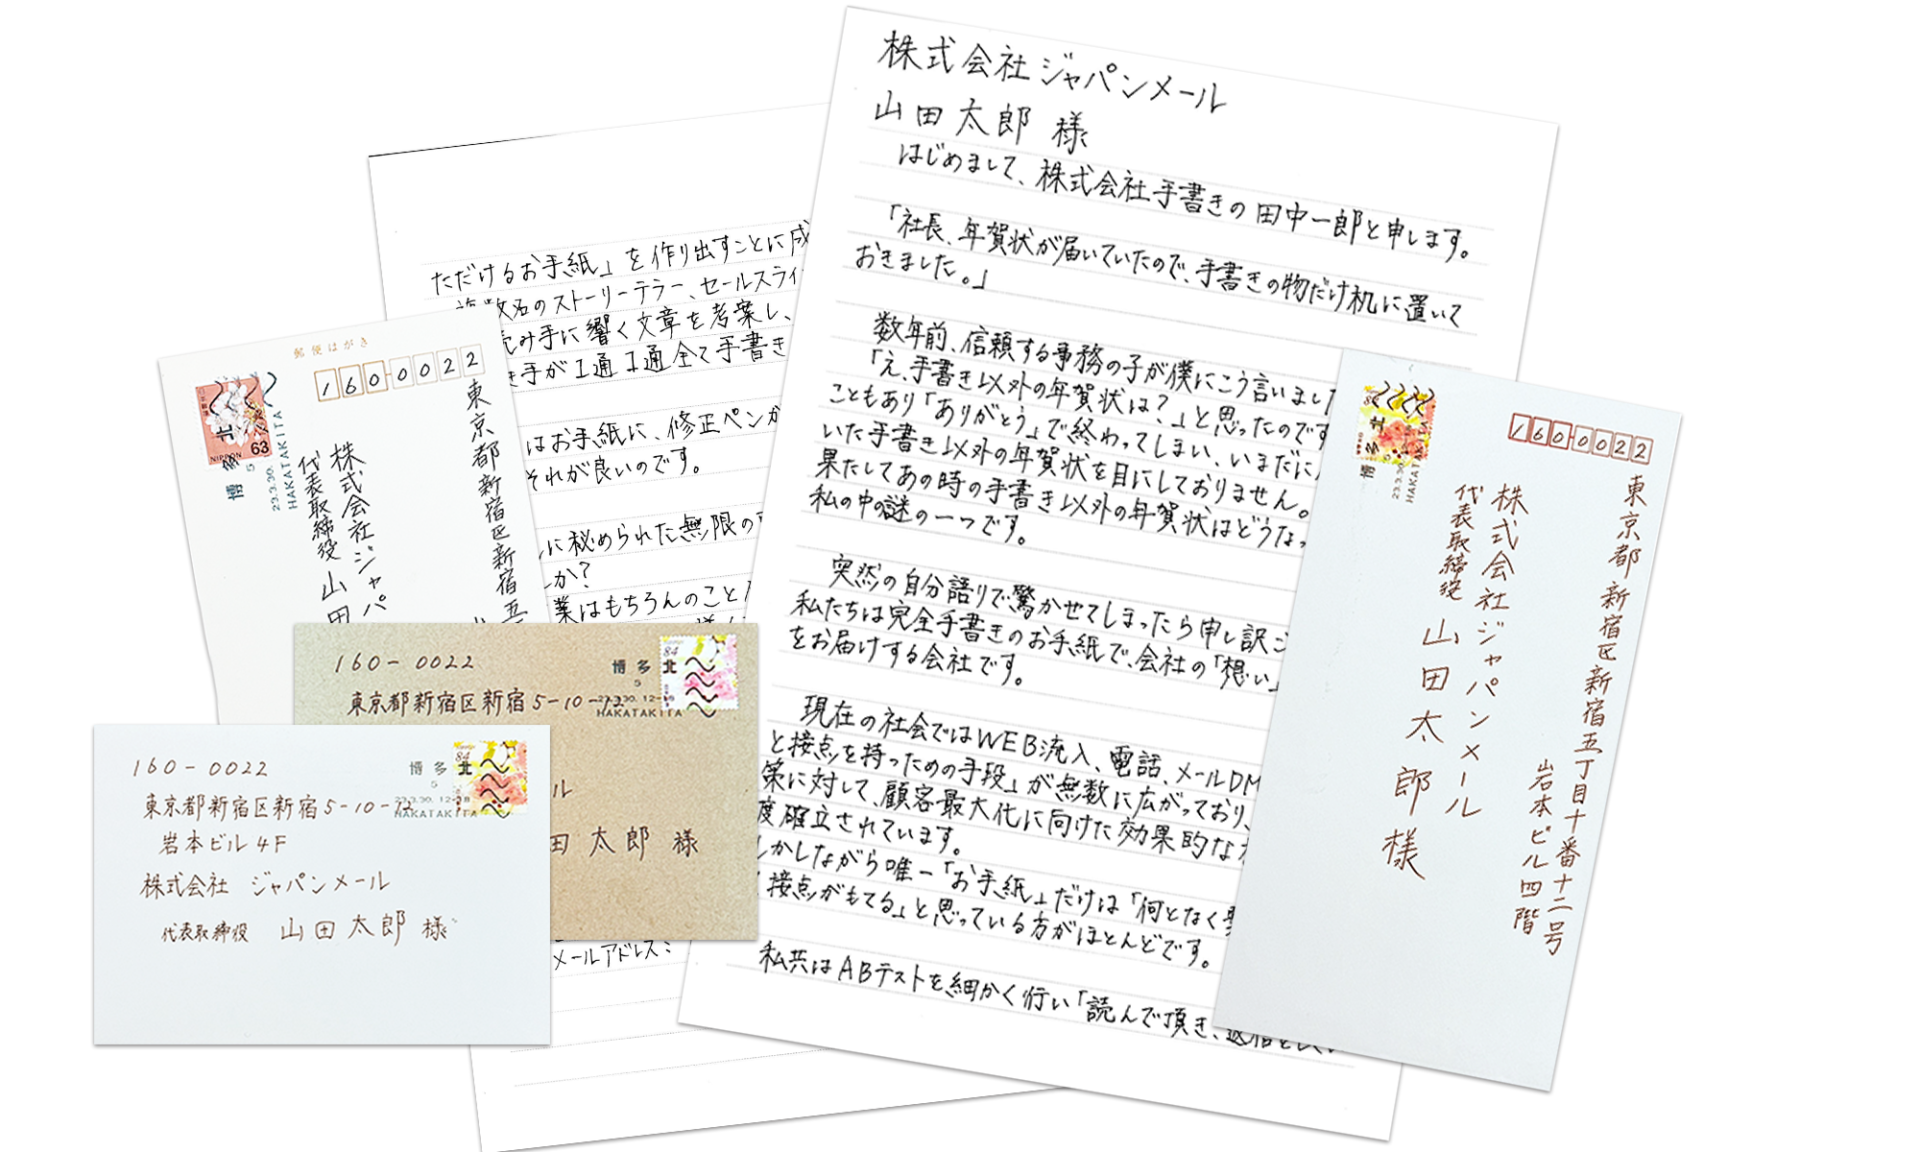 株式会社ジャパンメール
山田太郎 様
はじめまして、株式会社手書きの田中一郎と申します。
「社長、年賀状が届いていたので、手書きの物だけ机に置いて
おきました。」
数年前、信頼する事務の子が僕にこう言いまし
「え、手書き以外の年賀状は?」と思ったのです
こともあり「ありがとう」で終わってしまい、いまだに
いた手書き以外の年賀状を目にしておりません。
果たしてあの時の手書き以外の年賀状はどうなっ
私の中の謎の一つです。
突然の自分語りで驚かせてしまったら申し訳
私たちは完全手書きのお手紙で、会社の「想い」
をお届けする会社です。
現在の社会ではWEB流入、電話、メールDM
と接点を持つための手段」が無数に広がっており、
策に対して、顧客最大化に向けた効果的な
度確立されています。
しかしながら唯一「お手紙」だけは「何となく
接点がもてる」と思っている方がほとんどです。
私共はABテストを細かく行い「読んで頂き、
ただけるお手紙」を作り出すことに成
複数名のストーリーテラー、セールスライ
読み手に響く文章を考案し、
き手が1通1通全て手書き
はお手紙に、修正ペンが
それが良いのです。
に秘められた無限の
か?
業はもちろんのこと
メールアドレス:
郵便はがき
160-0022
東京都新宿区新宿五
株式会社ジャパ
代表取締役 山田
NIPPON 63
博多北
5
23.3.30.
HAKATAKITA
160-0022
東京都新宿区新宿5-10-12
ル
田太郎 様
84
博多北
5
23.3.30. 12-18
HAKATAKITA
160-0022
東京都新宿区新宿5-10-12
岩本ビル4F
株式会社 ジャパンメール
代表取締役 山田太郎 様
84
博多北
5
23.3.30. 12-18
HAKATAKITA
160-0022
東京都新宿区新宿五丁目十番十二号
岩本ビル四階
株式会社ジャパンメール
代表取締役 山田太郎 様
84
博多北
5
23.3.30
HAKATAKITA